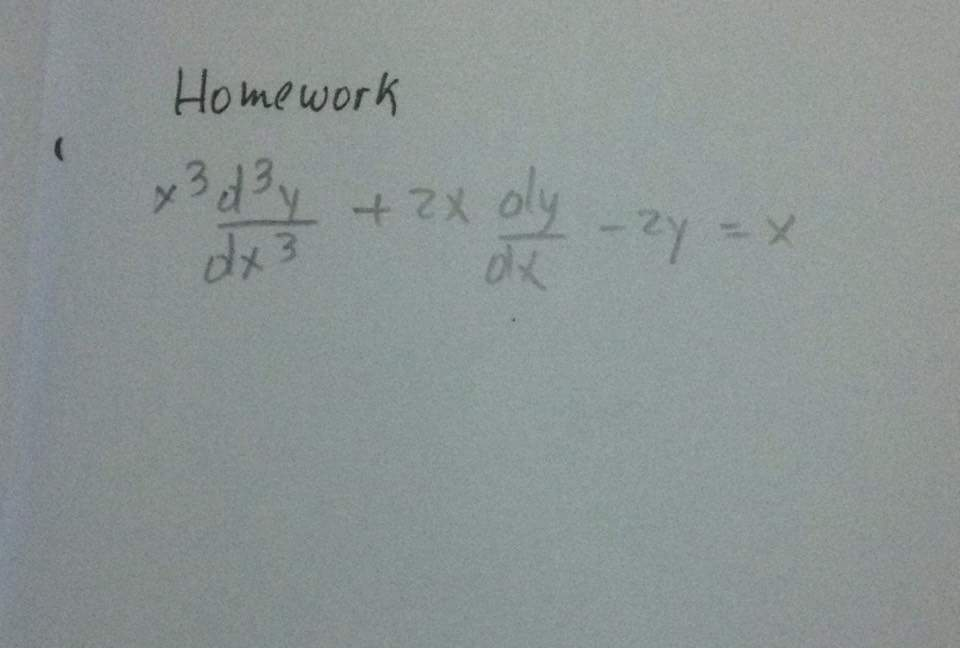 Homework
x³ d³y/dx³ + 2x dy/dx - 2y = x